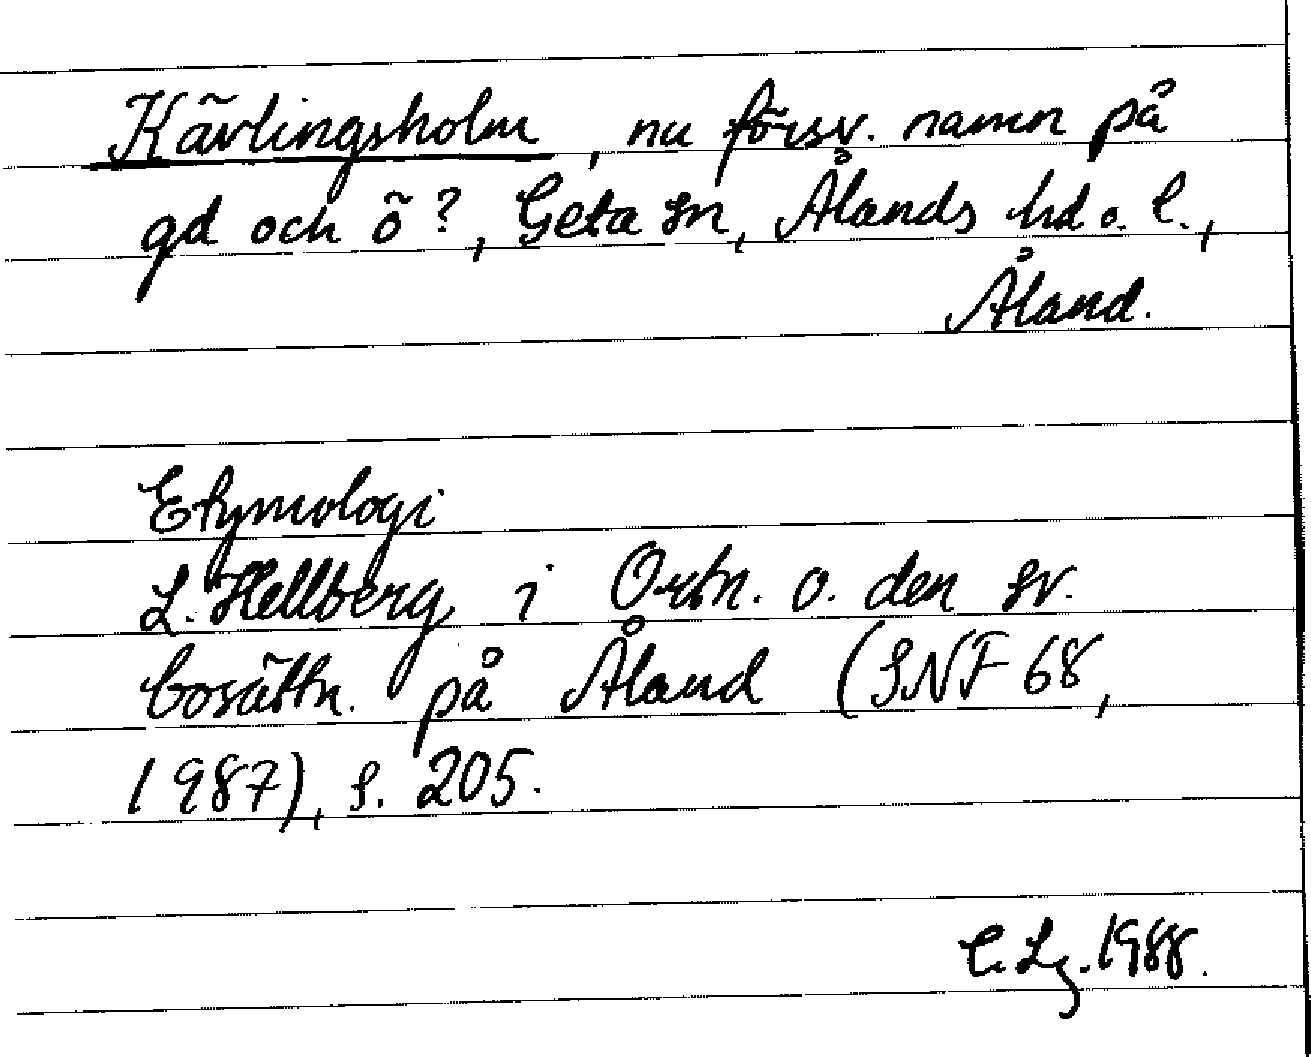 Kävlingsholm, nu försv. namn på
gd och ö?, Geta sn, Ålands hd o. l.,
Åland.
Etymologi
L. Hellberg i Ortn. o. den sv.
bosättn. på Åland (SNF 68,
1987), s. 205.
C. Lg. 1988.